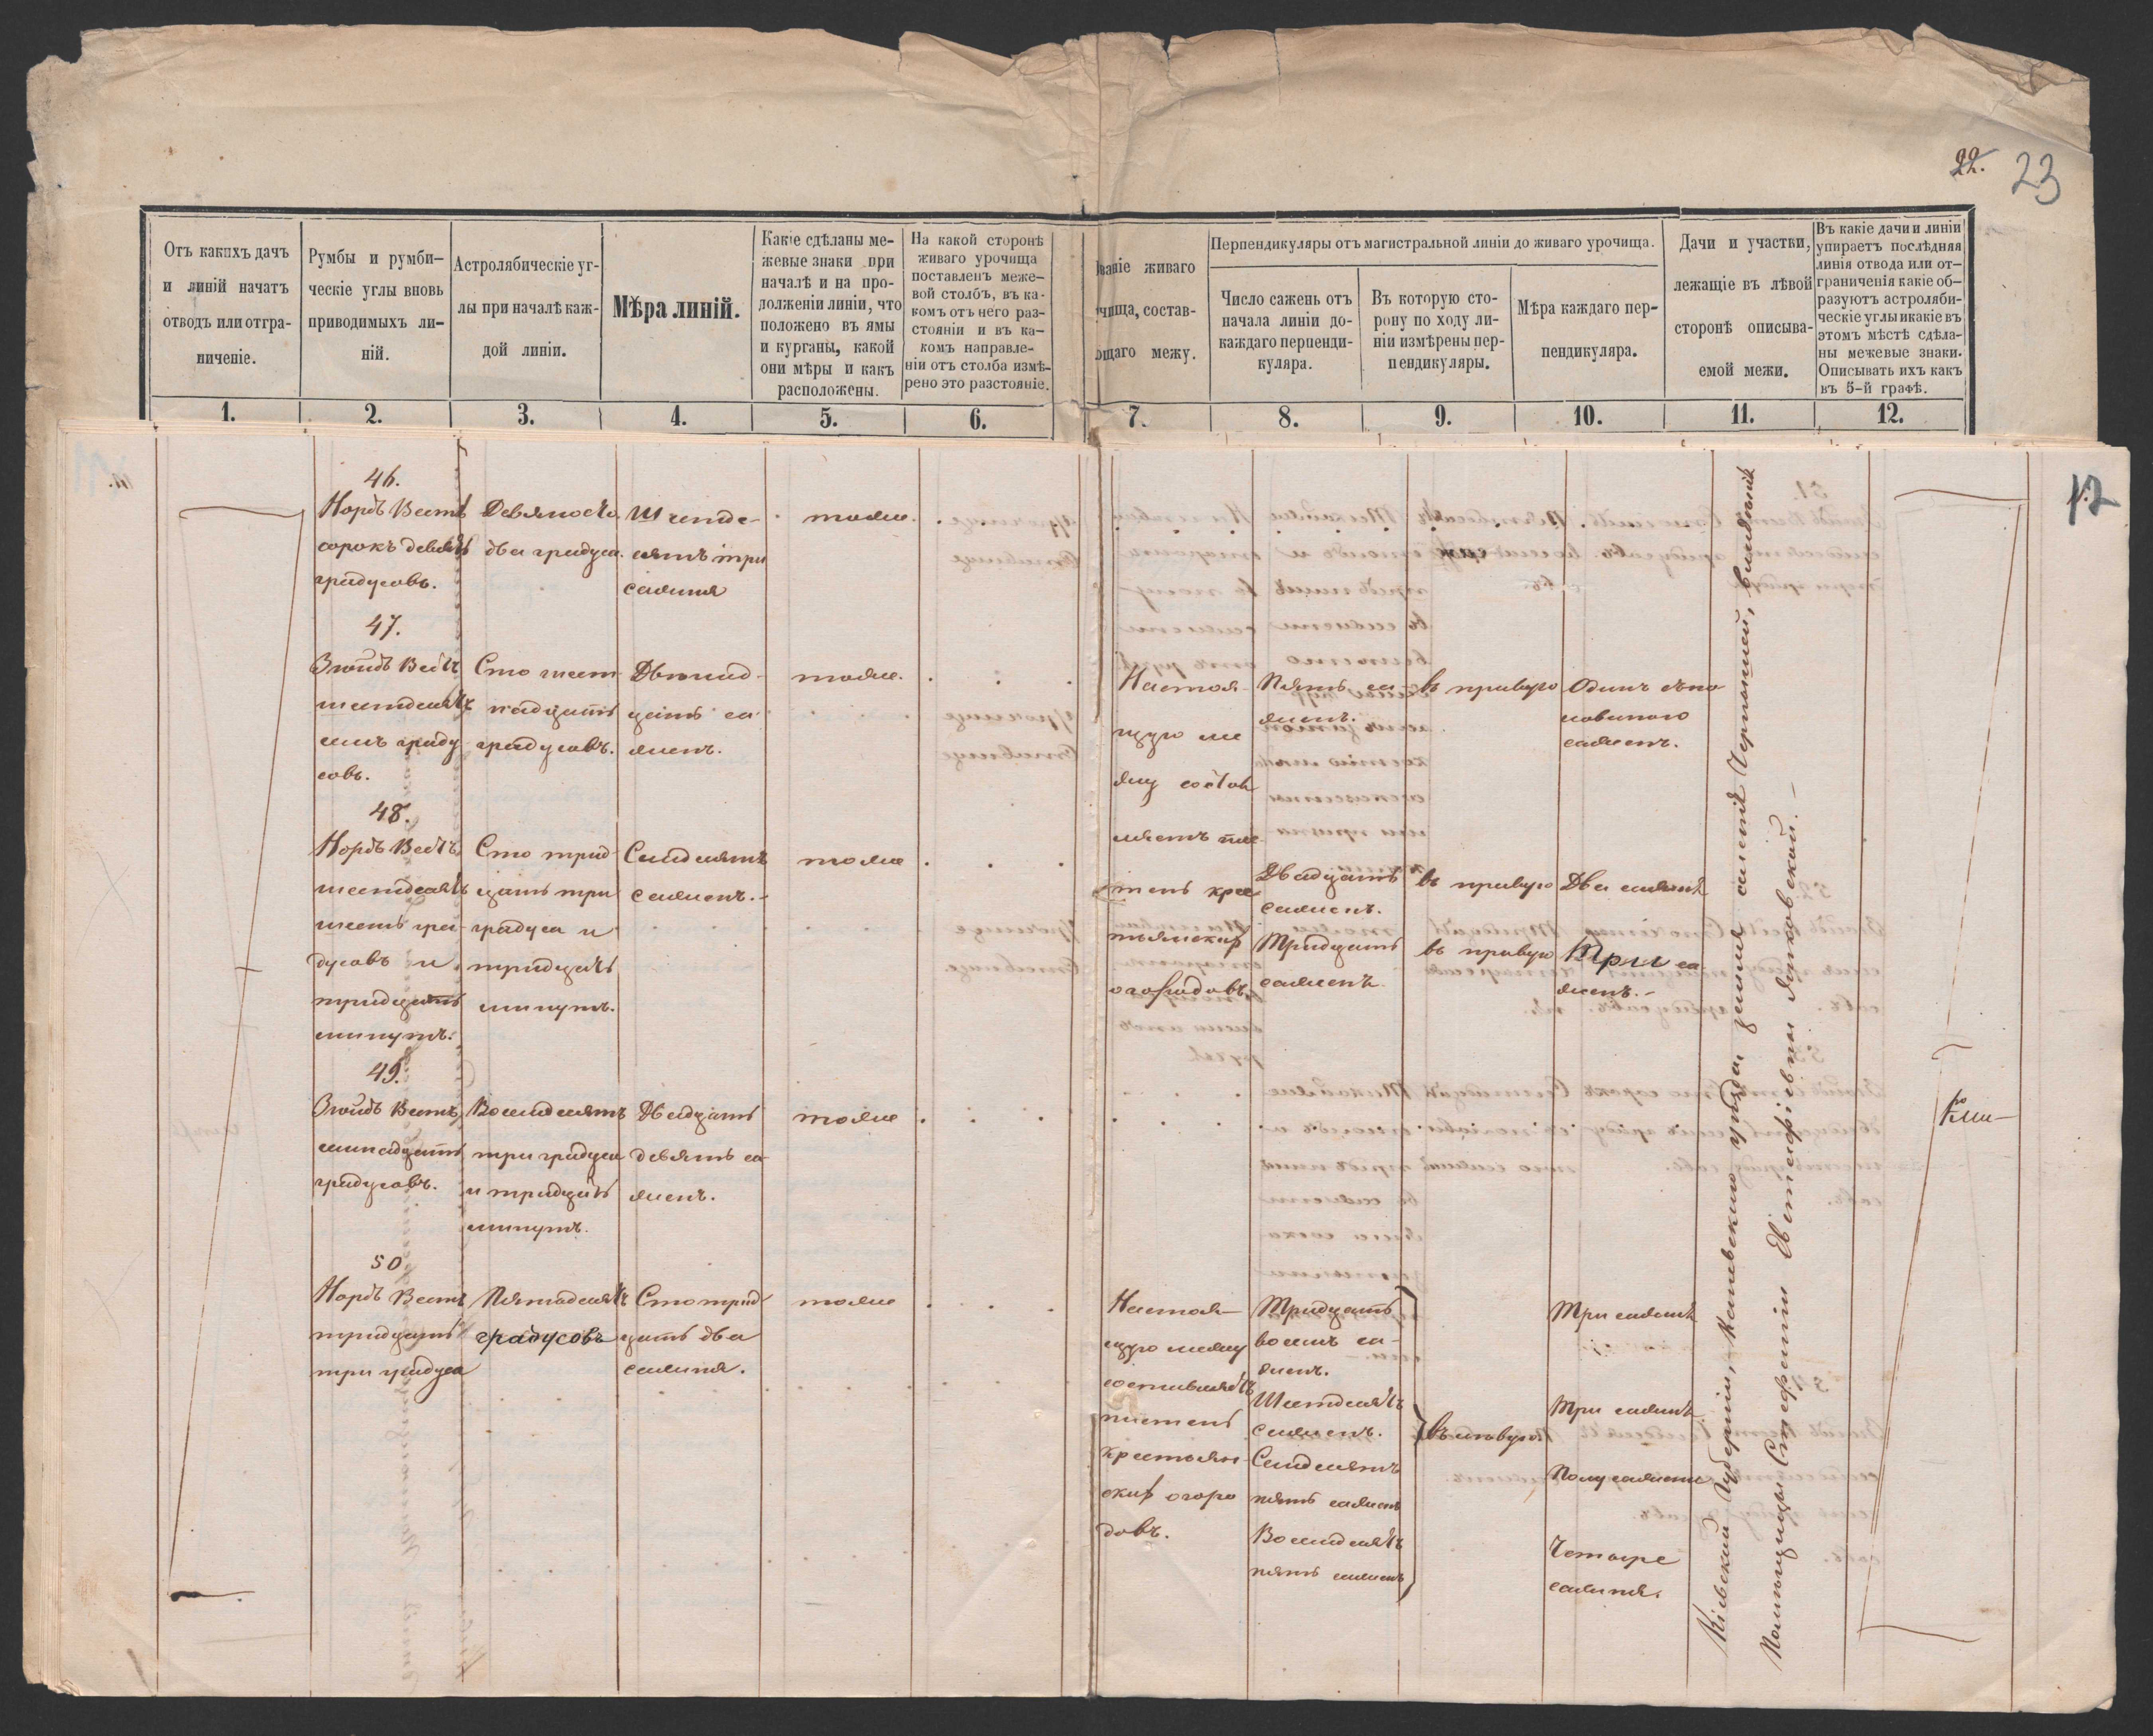 22. 23
Отъ какихъ дачъ
и линій начатъ
отводъ или отгра-
ниченіе.
Румбы и румби-
ческіе углы вновь
приводимыхъ ли-
ній.
Астролябическіе уг-
лы при началѣ каж-
дой линіи.
Мѣра линій.
Какіе сдѣланы ме-
жевые знаки при
началѣ и на про-
долженіи линіи, что
положено въ ямы
и курганы, какой
они мѣры и какъ
расположены.
На какой сторонѣ
живаго урочища
поставленъ меже-
вой столбъ, въ ка-
комъ отъ него раз-
стояніи и въ ка-
комъ направле-
ніи отъ столба измѣ-
рено это разстояніе.
ваніе живаго
чища, состав-
щаго межу.
Перпендикуляры отъ магистральной линіи до живаго урочища.
Число сажень отъ
начала линіи до
каждаго перпенди-
куляра.
Въ которую сто-
рону по ходу ли-
ніи измѣрены пер-
пендикуляры.
Мѣра каждаго пер-
пендикуляра.
Дачи и участки,
лежащіе въ лѣвой
сторонѣ описыва-
емой межи.
Въ какіе дачи и линіи
упираетъ послѣдняя
линія отвода или от-
граниченія какіе об-
разуютъ астроляби-
ческіе углы и какіе въ
этомъ мѣстѣ сдѣла-
ны межевые знаки.
Описывать ихъ какъ
въ 5-й графѣ.
1. 2. 3. 4. 5. 6. 7. 8. 9. 10. 11. 12.
12
46.
Нордъ Вестъ
сорокъ девять
градусовъ.
Девяносто
два градуса.
Шестьде-
сятъ три
сажня
тоже.
47.
Зюйдъ Вестъ
шестдесятъ
семь граду
совъ.
Сто шест
надцать
градусовъ.
Двенад-
цать са
женъ.
тоже.
Настоя-
щую ме
жу состав
ляетъ пле
тень крес
тьянскихъ
огородовъ
Пять са-
женъ.
въ правую
Одинъ съ по
ловиною
саженъ.
48.
Нордъ Вестъ
шестдесятъ
шесть гра-
дусовъ и
тридцать
минутъ.
Сто трид
цать три
градуса и
тридцать
минутъ.
Семдесятъ
саженъ.
тоже
Двадцать
саженъ.
въ правую
Два сажня
Тридцать
саженъ
въ правую
Три са
женъ.
49.
Зюйдъ Вестъ
семнадцать
градусовъ.
Восемдесятъ
три градуса
и тридцать
минутъ.
Двадцать
девять са-
женъ.
тоже
50
Нордъ Вестъ
тридцать
три градуса
Пятьдесятъ
градусовъ
Сто трид
цать два
сажня.
тоже
Настоя-
щую межу
составляетъ
плетень
крестьян
скихъ огоро
довъ.
Тридцать
восемь са-
женъ.
Шестдесятъ
саженъ.
Семдесятъ
пять саженъ
Восемдесятъ
пять саженъ
въ лѣвую
Три сажня
Три сажня
Полусажени
Четыре
сажня.
Кіевской Губерніи, Каневскаго уѣзда, земля селенія Черпышей, владѣнія
Помѣщицы Стефаніи Евстафіевны